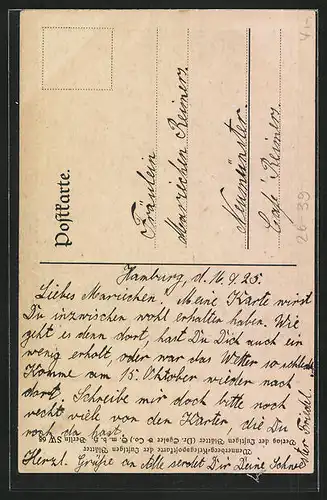 Postkarte.
Fräulein
Mariechen Reimers
Neumünster.
Café Reimers
Hamburg, d. 16.9.25.
Liebes Mariechen. Meine Karte wirst
Du inzwischen wohl erhalten haben. Wie
geht es denn dort, hast Du Dich auch ein
wenig erholt, oder war das Wetter so schlecht
Komme am 15. Oktober wieder nach
dort. Schreibe mir doch bitte noch
recht viele von den Karten, die Du
noch da hast.
Herzl. Grüße an Alle sendet Dir Deine Schwester Friedel.
Verlag der Lustigen Blätter (Dr. Eysler & Co.) G. m. b. H. Berlin SW 68
der Lustigen Blätter